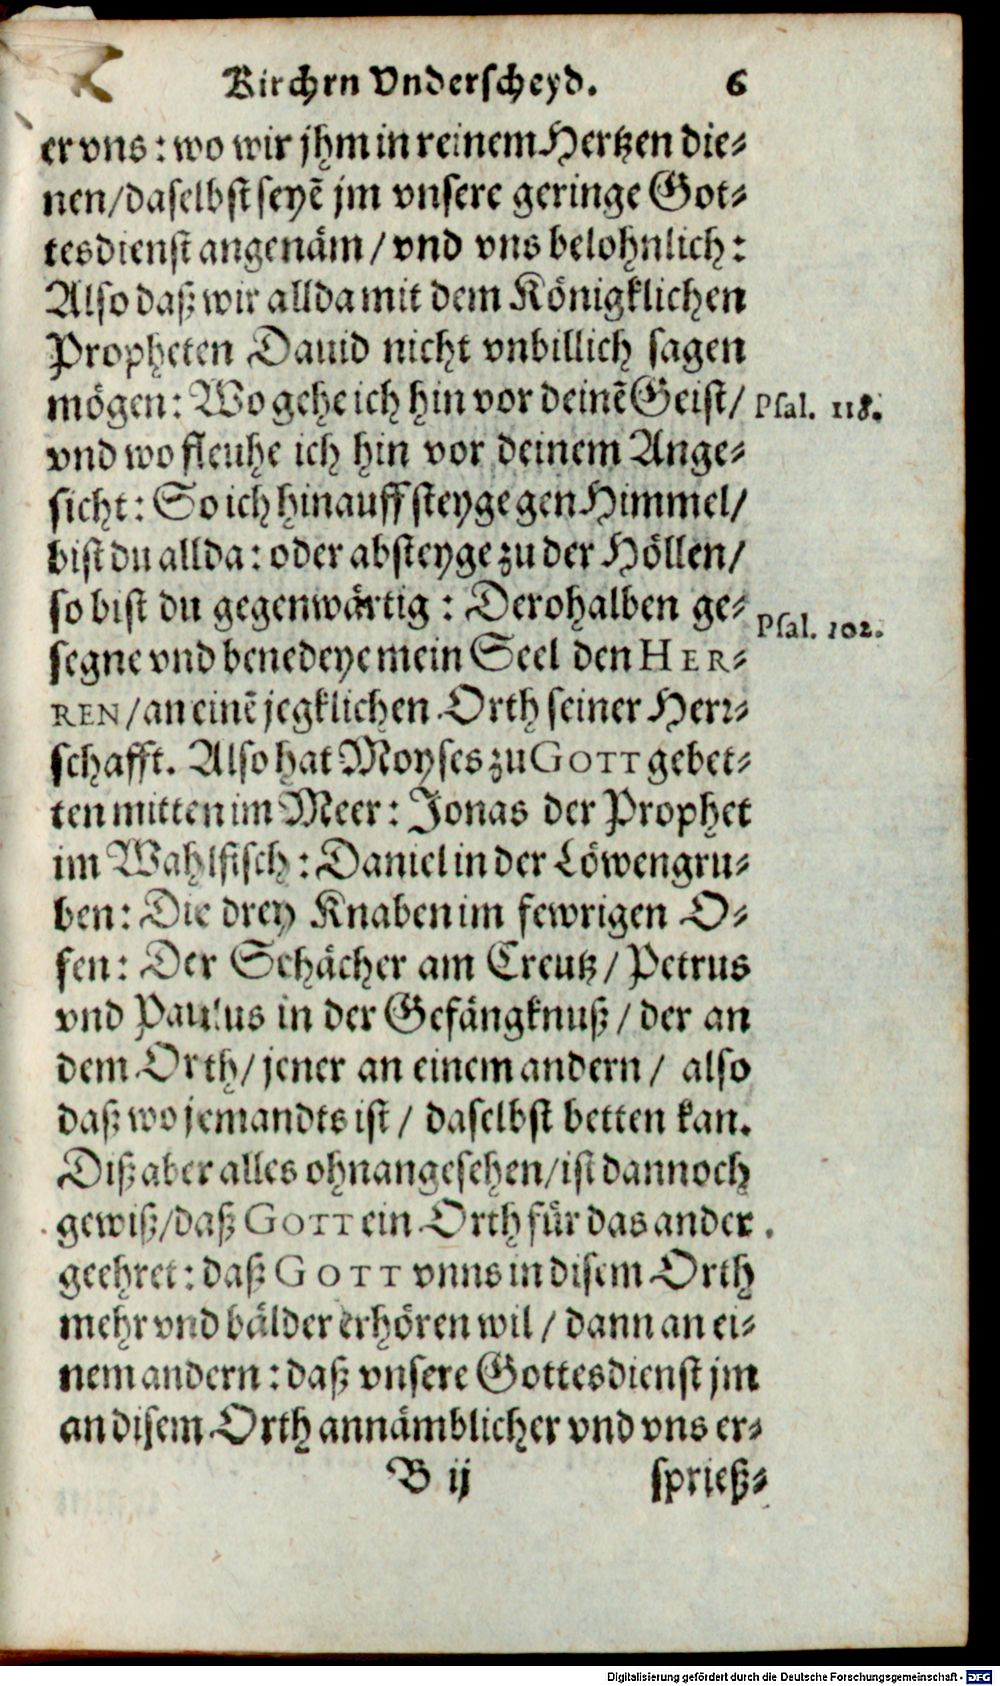 Kirchrn Vnderscheyd. 6
er vns: wo wir jhm in reinem Hertzen die-
nen/daselbst seyẽ jm vnsere geringe Got-
tesdienst angenäm/vnd vns belohnlich:
Also daß wir allda mit dem Königklichen
Propheten Dauid nicht vnbillich sagen
mögen: Wo gehe ich hin vor deinẽ Geist/ Psal. 118.
vnd wo fleuhe ich hin vor deinem Ange-
sicht: So ich hinauff steyge gen Himmel/
bist du allda: oder absteyge zu der Höllen/
so bist du gegenwärtig: Derohalben ge-
segne vnd benedeye mein Seel den HER- Psal. 102.
REN/an einẽ jegklichen Orth seiner Herr-
schafft. Also hat Moyses zu GOTT gebet-
ten mitten im Meer: Jonas der Prophet
im Wahlfisch: Daniel in der Löwengru-
ben: Die drey Knaben im fewrigen O-
fen: Der Schächer am Creutz/Petrus
vnd Paulus in der Gefängknuß/der an
dem Orth/jener an einem andern/ also
daß wo jemandts ist/ daselbst betten kan.
Diß aber alles ohnangesehen/ist dannoch
gewiß/daß GOTT ein Orth für das ander
geehret: daß GOTT vnns in disem Orth
mehr vnd bälder erhören wil/dann an ei-
nem andern: daß vnsere Gottesdienst jm
an disem Orth annämblicher vnd vns er-
B ij sprieß-
Digitalisierung gefördert durch die Deutsche Forschungsgemeinschaft - DFG